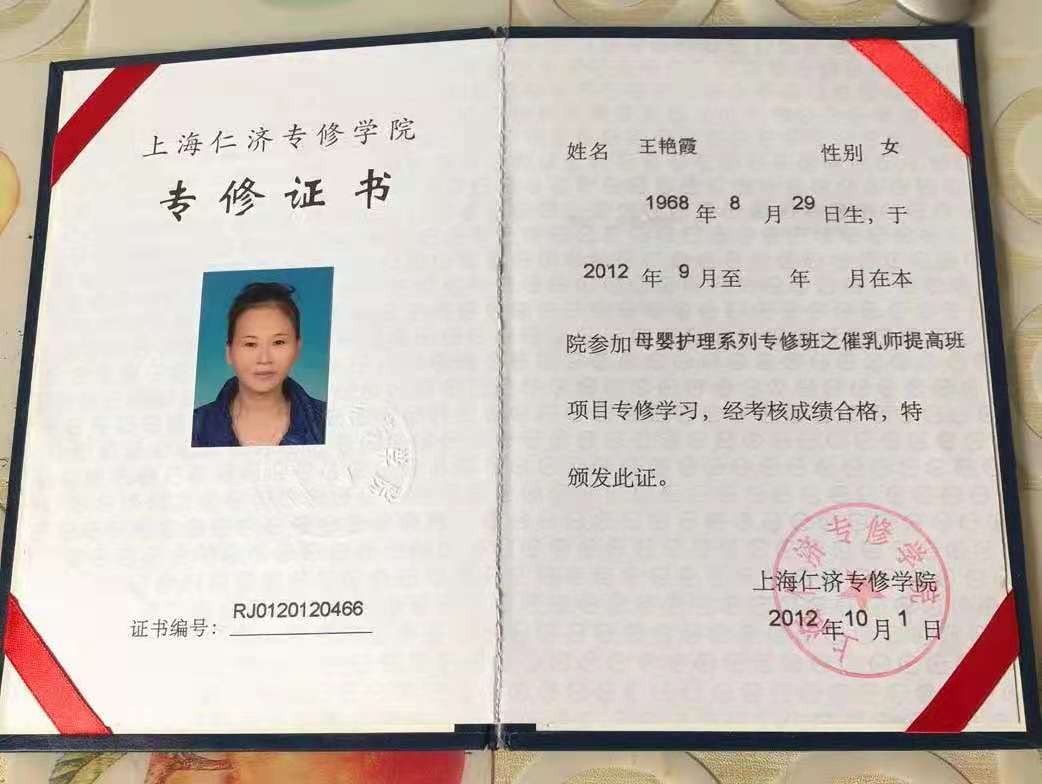 上海仁济专修学院
专修证书
证书编号：RJ0120120466
姓名 王艳霞 性别 女
1968 年 8 月 29 日生，于
2012 年 9 月至 年 月在本
院参加母婴护理系列专修班之催乳师提高班
项目专修学习，经考核成绩合格，特
颁发此证。
上海仁济专修学院
上海仁济专修学院
2012 年 10 月 1 日